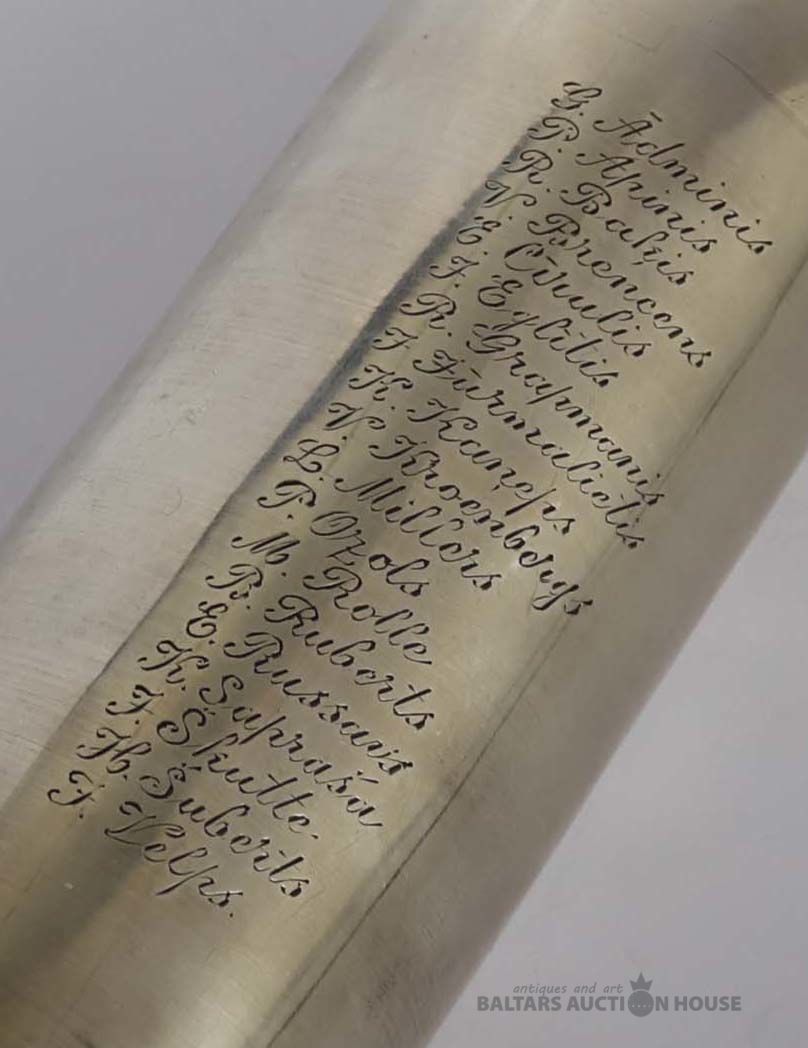 G. Ādminis
P. Apinis
R. Baķis
V. Brencens
E. Cīrulis
J. Eglītis
R. Grapmanis
J. Jūrmalietis
K. Kaņeps
V. Kroenbergs
L. Millers
P. Ozols
M. Rolle
B. Ruberts
E. Russavs
K. Sapraša
J. Škutte.
H. Šuberts
J. Velps.
antiques and art
BALTARS AUCTION HOUSE